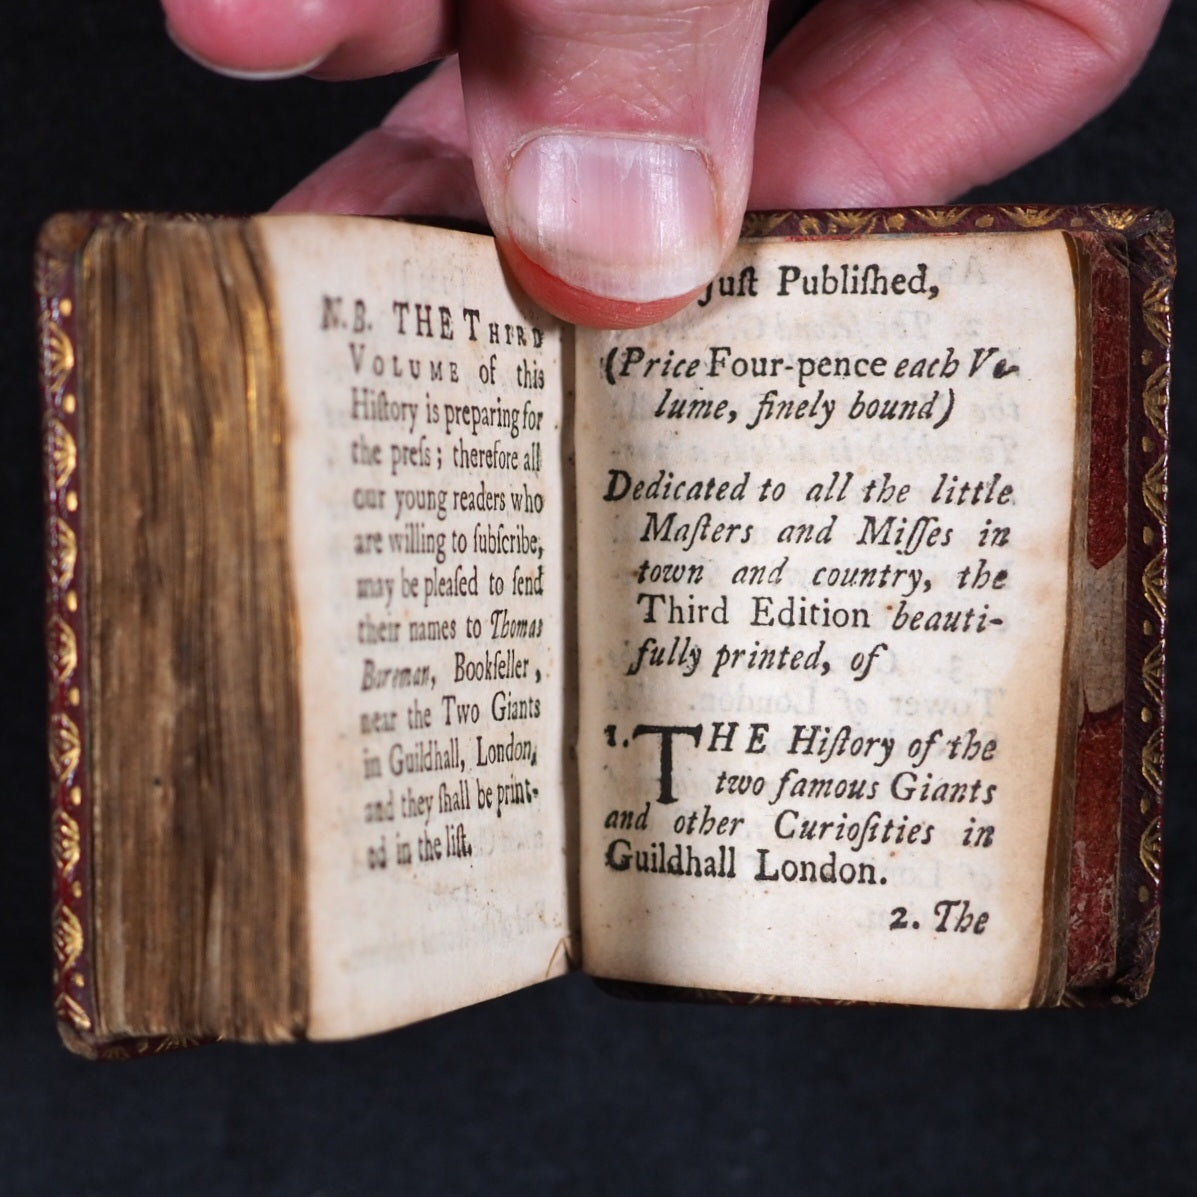 N.B. THE THIRD
VOLUME of this
Hiſtory is preparing for
the preſs; therefore all
our young readers who
are willing to ſubſcribe,
may be pleaſed to ſend
their names to Thomas
Boreman, Bookſeller,
near the Two Giants
in Guildhall, London,
and they ſhall be print-
ed in the liſt.
Juſt Publiſhed,
(Price Four-pence each Vo-
lume, finely bound)
Dedicated to all the little
Maſters and Miſſes in
town and country, the
Third Edition beauti-
fully printed, of
1. THE Hiſtory of the
two famous Giants
and other Curioſities in
Guildhall London.
2. The